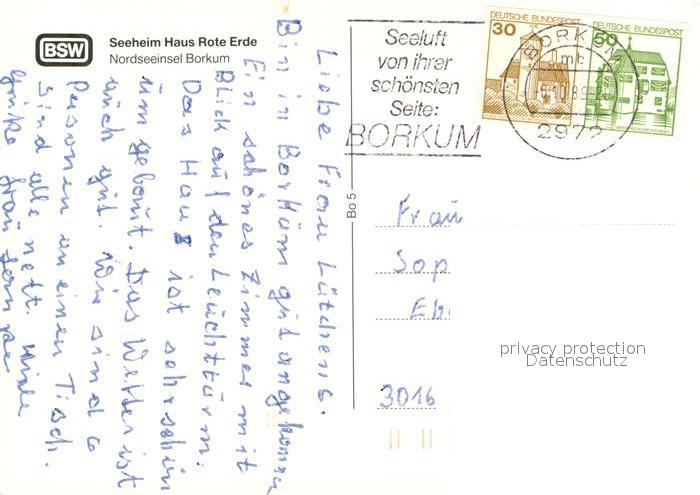 BSW
Seeheim Haus Rote Erde
Nordseeinsel Borkum
Liebe Frau Lütchens.
Bin in Borkum gut angekommen
Ein schönes Zimmer mit
Blick auf den Leuchtturm.
Das Haus ist sehr schön
um gebaut. Das Wetter ist
auch gut. Wir sind 6
Personen an einen Tisch.
Sind alle nett. Viele
Grüße Frau
Seeluft
von ihrer
schönsten
Seite:
BORKUM
DEUTSCHE BUNDESPOST
30
DEUTSCHE BUNDESPOST
50
BORKUM
mb
2972
Bo 5
Frau
Sop
3016
privacy protection
Datenschutz